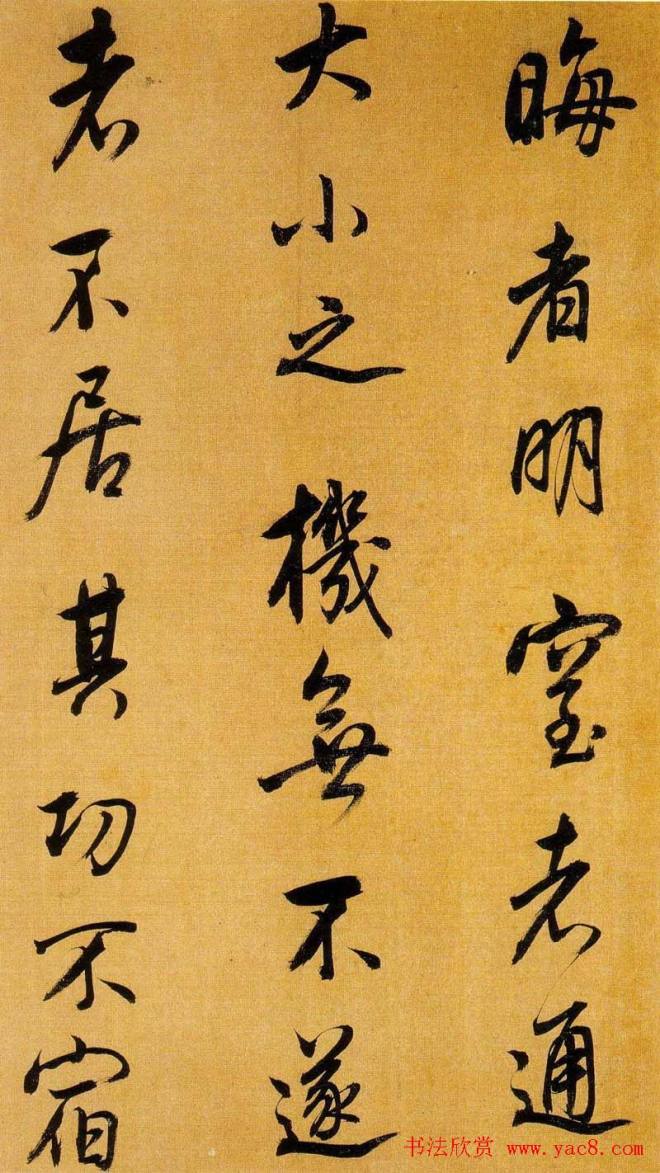 晦者明窒者通
大小之機無不遂
者不居其功不宿
书法欣赏 www.yac8.com